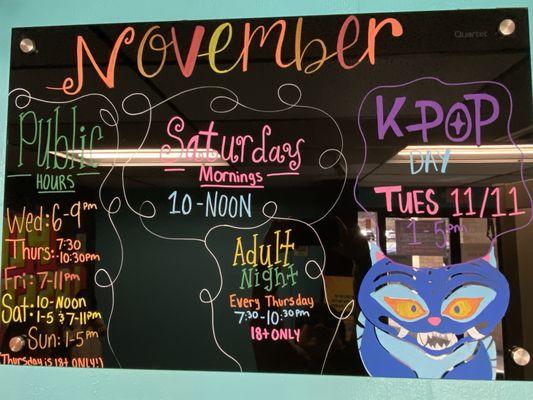 November
Quartet
Public
HOURS
Wed: 6-9pm
Thurs: 7:30-10:30pm
Fri: 7-11pm
Sat: 10-Noon
1-5 & 7-11pm
Sun: 1-5pm
(Thursday is 18+ ONLY!)
Saturday
Mornings
10-NOON
Adult
Night
Every Thursday
7:30-10:30pm
18+ ONLY
K-POP
DAY
TUES 11/11
1-5pm